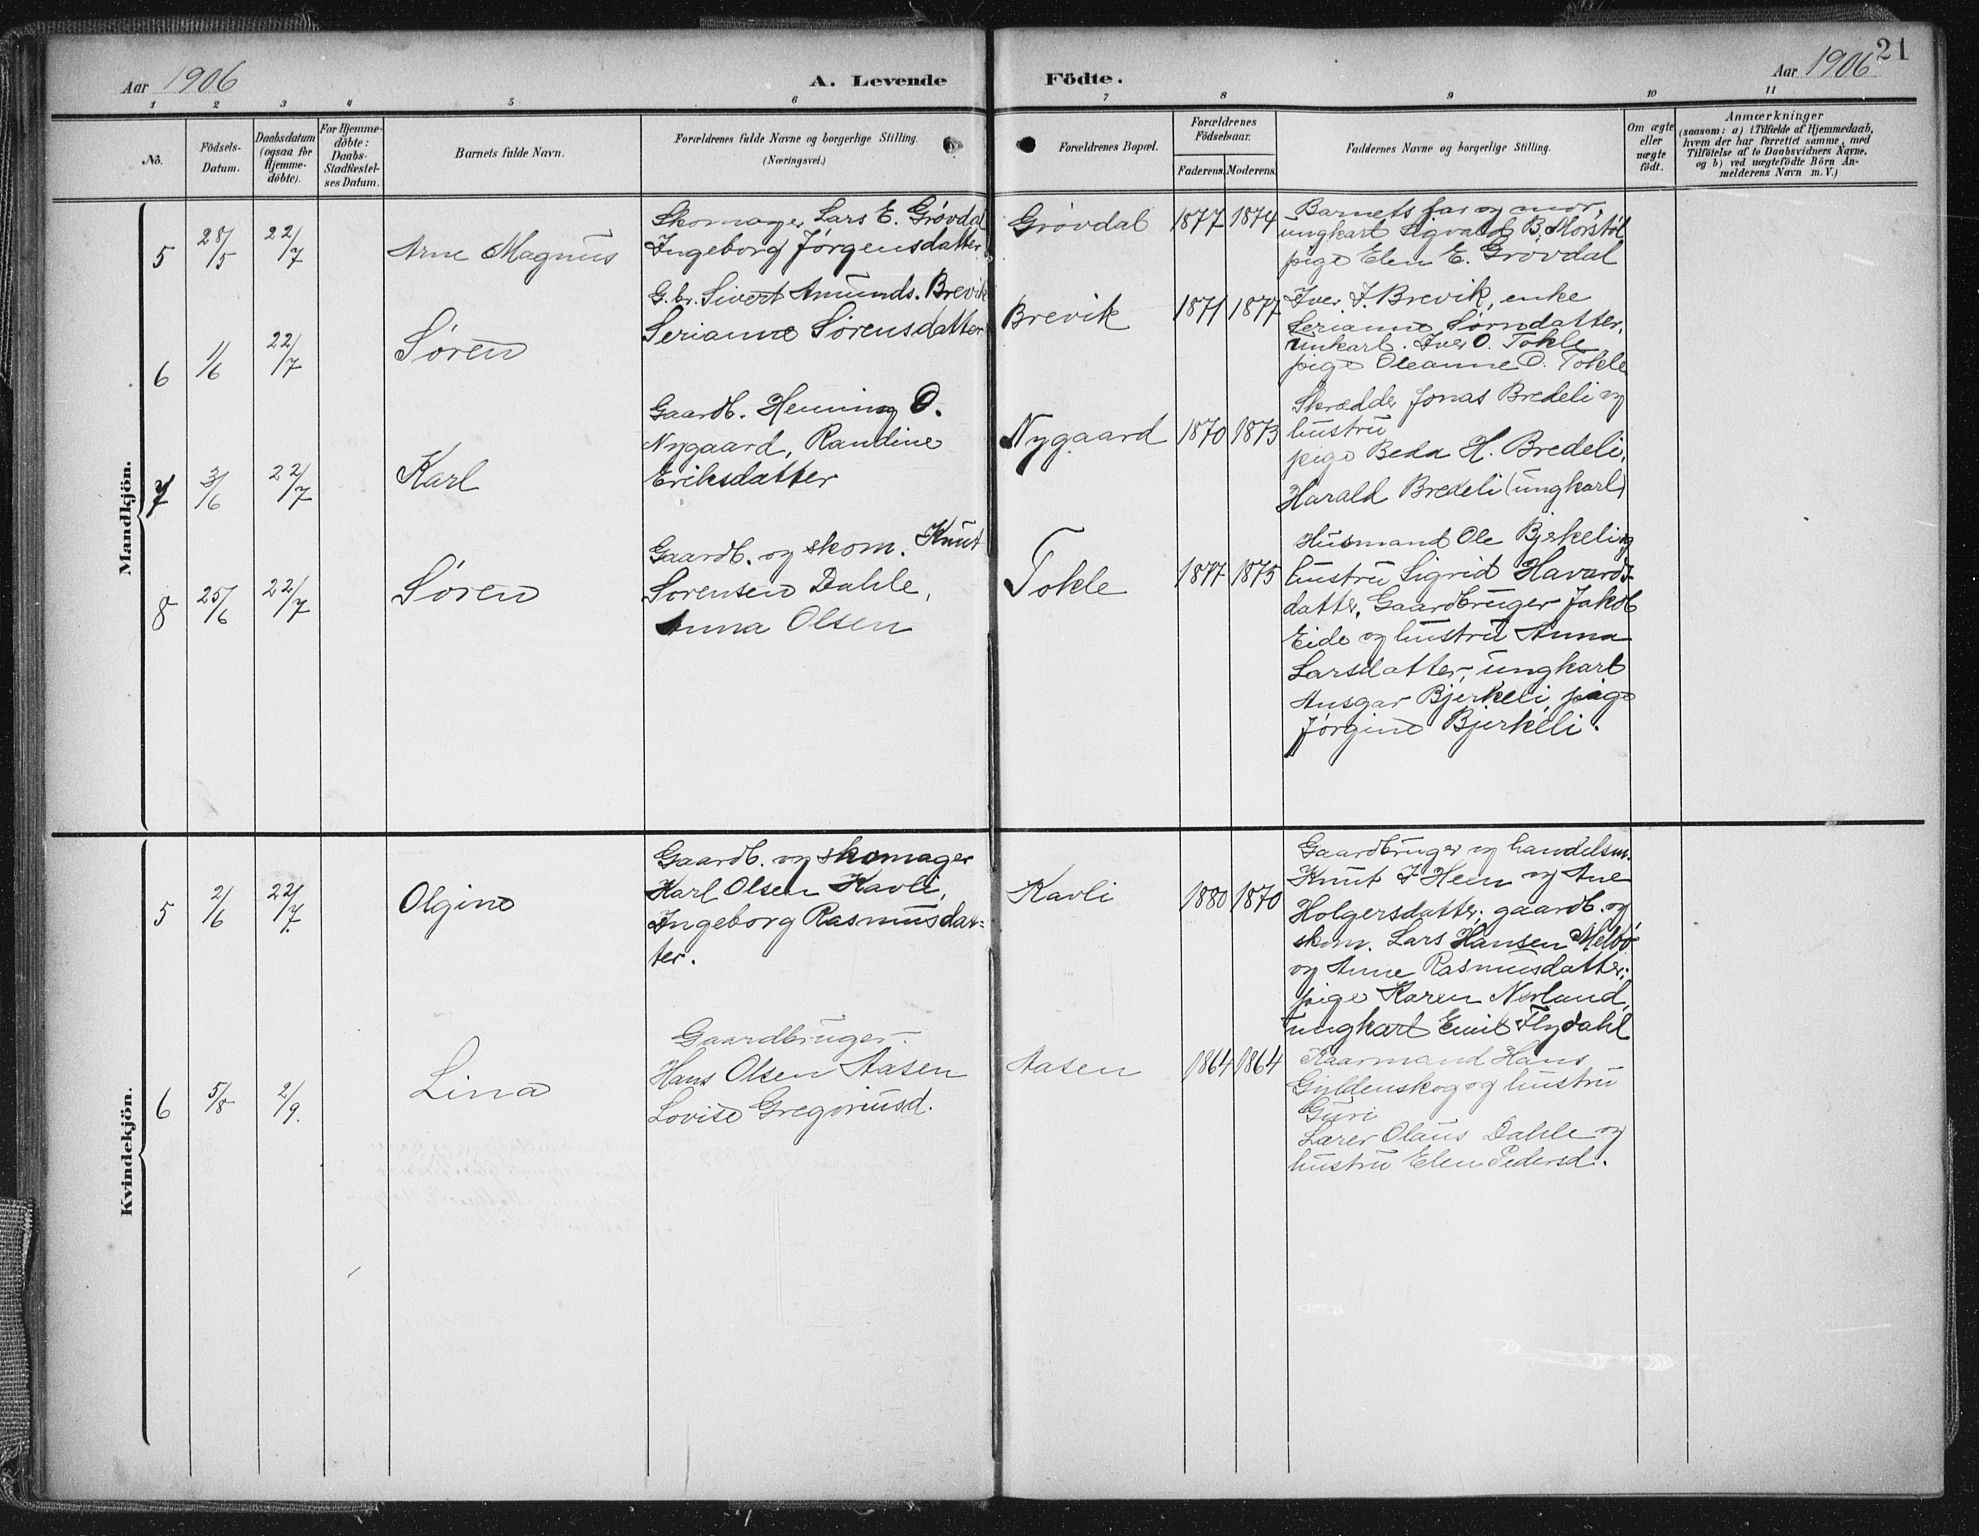 Aar 1906
A. Levende
Födte.
Aar 1906
21
1 2 3 4 5 6 7 8 9 10 11
No.
Födsels-
Datum.
Daabsdatum
(ogsaa for
Hjemme-
döbte).
For Hjemme-
döbte:
Daabs-
Stadfæstel-
ses Datum.
Barnets fulde Navn.
Forældrenes fulde Navne og borgerlige Stilling.
(Næringsvei.)
Forældrenes Bopæl.
Forældrenes
Födselsaar.
Faderens.
Moderens.
Faddernes Navne og borgerlige Stilling.
Om ægte
eller
uægte
födt.
Anmærkninger
(saasom: a) i Tilfælde af Hjemmedaab,
hvem der har forrettet samme, med
Tilföielse af to Daabsvidners Navne,
og b) ved uægtefödte Börn An-
melderens Navn m. V.)
Mandkjön.
5
28/5
22/7
Arne Magnus
Skomager Lars E. Grøvdal
Ingeborg Jørgensdatter
Grøvdal
1877
1874
Barnets far og mor,
ungkarl Sigvald B. Morstøl
pige Elen E. Grøvdal
6
1/6
22/7
Søren
G.br. Sivert Amunds. Brevik
Serianne Sørensdatter
Brevik
1871
1877
Iver J. Brevik, enke
Serianne Sørndatter,
unkarl. Iver O. Tokle
pige Oleanne O. Tokle
7
3/6
22/7
Karl
Gaardb. Henning O.
Nygaard, Randine
Eriksdatter
Nygaard
1870
1873
Skrædder Jonas Bredeli og
hustru
pige Beda H. Bredeli,
Harald Bredeli (ungkarl)
8
25/6
22/7
Søren
Gaardb. og skom. Knut
Sørensen Dahle,
Anna Olsen
Tokle
1877
1875
Husmand Ole Bjerkeli og
hustru Sigrid Havards-
datter, Gaardbruger Jakob
Eide og hustru Anna
Larsdatter, ungkarl
Ansgar Bjerkeli, pige
Jørgine Bjerkeli.
Kvindekjön.
5
2/6
22/7.
Olgine
Gaardb. og skomager
Karl Olsen Kavli,
Ingeborg Rasmusdat-
ter.
Kavli
1880
1870
Gaardbruger og handelsm.
Knut I Heen og Ane
Holgersdatter; gaardb. og
skom. Lars Hansen Melbø
og Anne Rasmusdatter;
pige Karen Nerland,
ungkarl Emil Flydahl
6
5/8
2/9.
Lina
Gaardbruger
Hans Olsen Aasen
Lovise Gregoriusd.
Aasen
1864
1864
Kaarmand Hans
Gyldenskog og hustru
Guri
Lærer Olaus Dahle og
hustru Elen Pedersd.